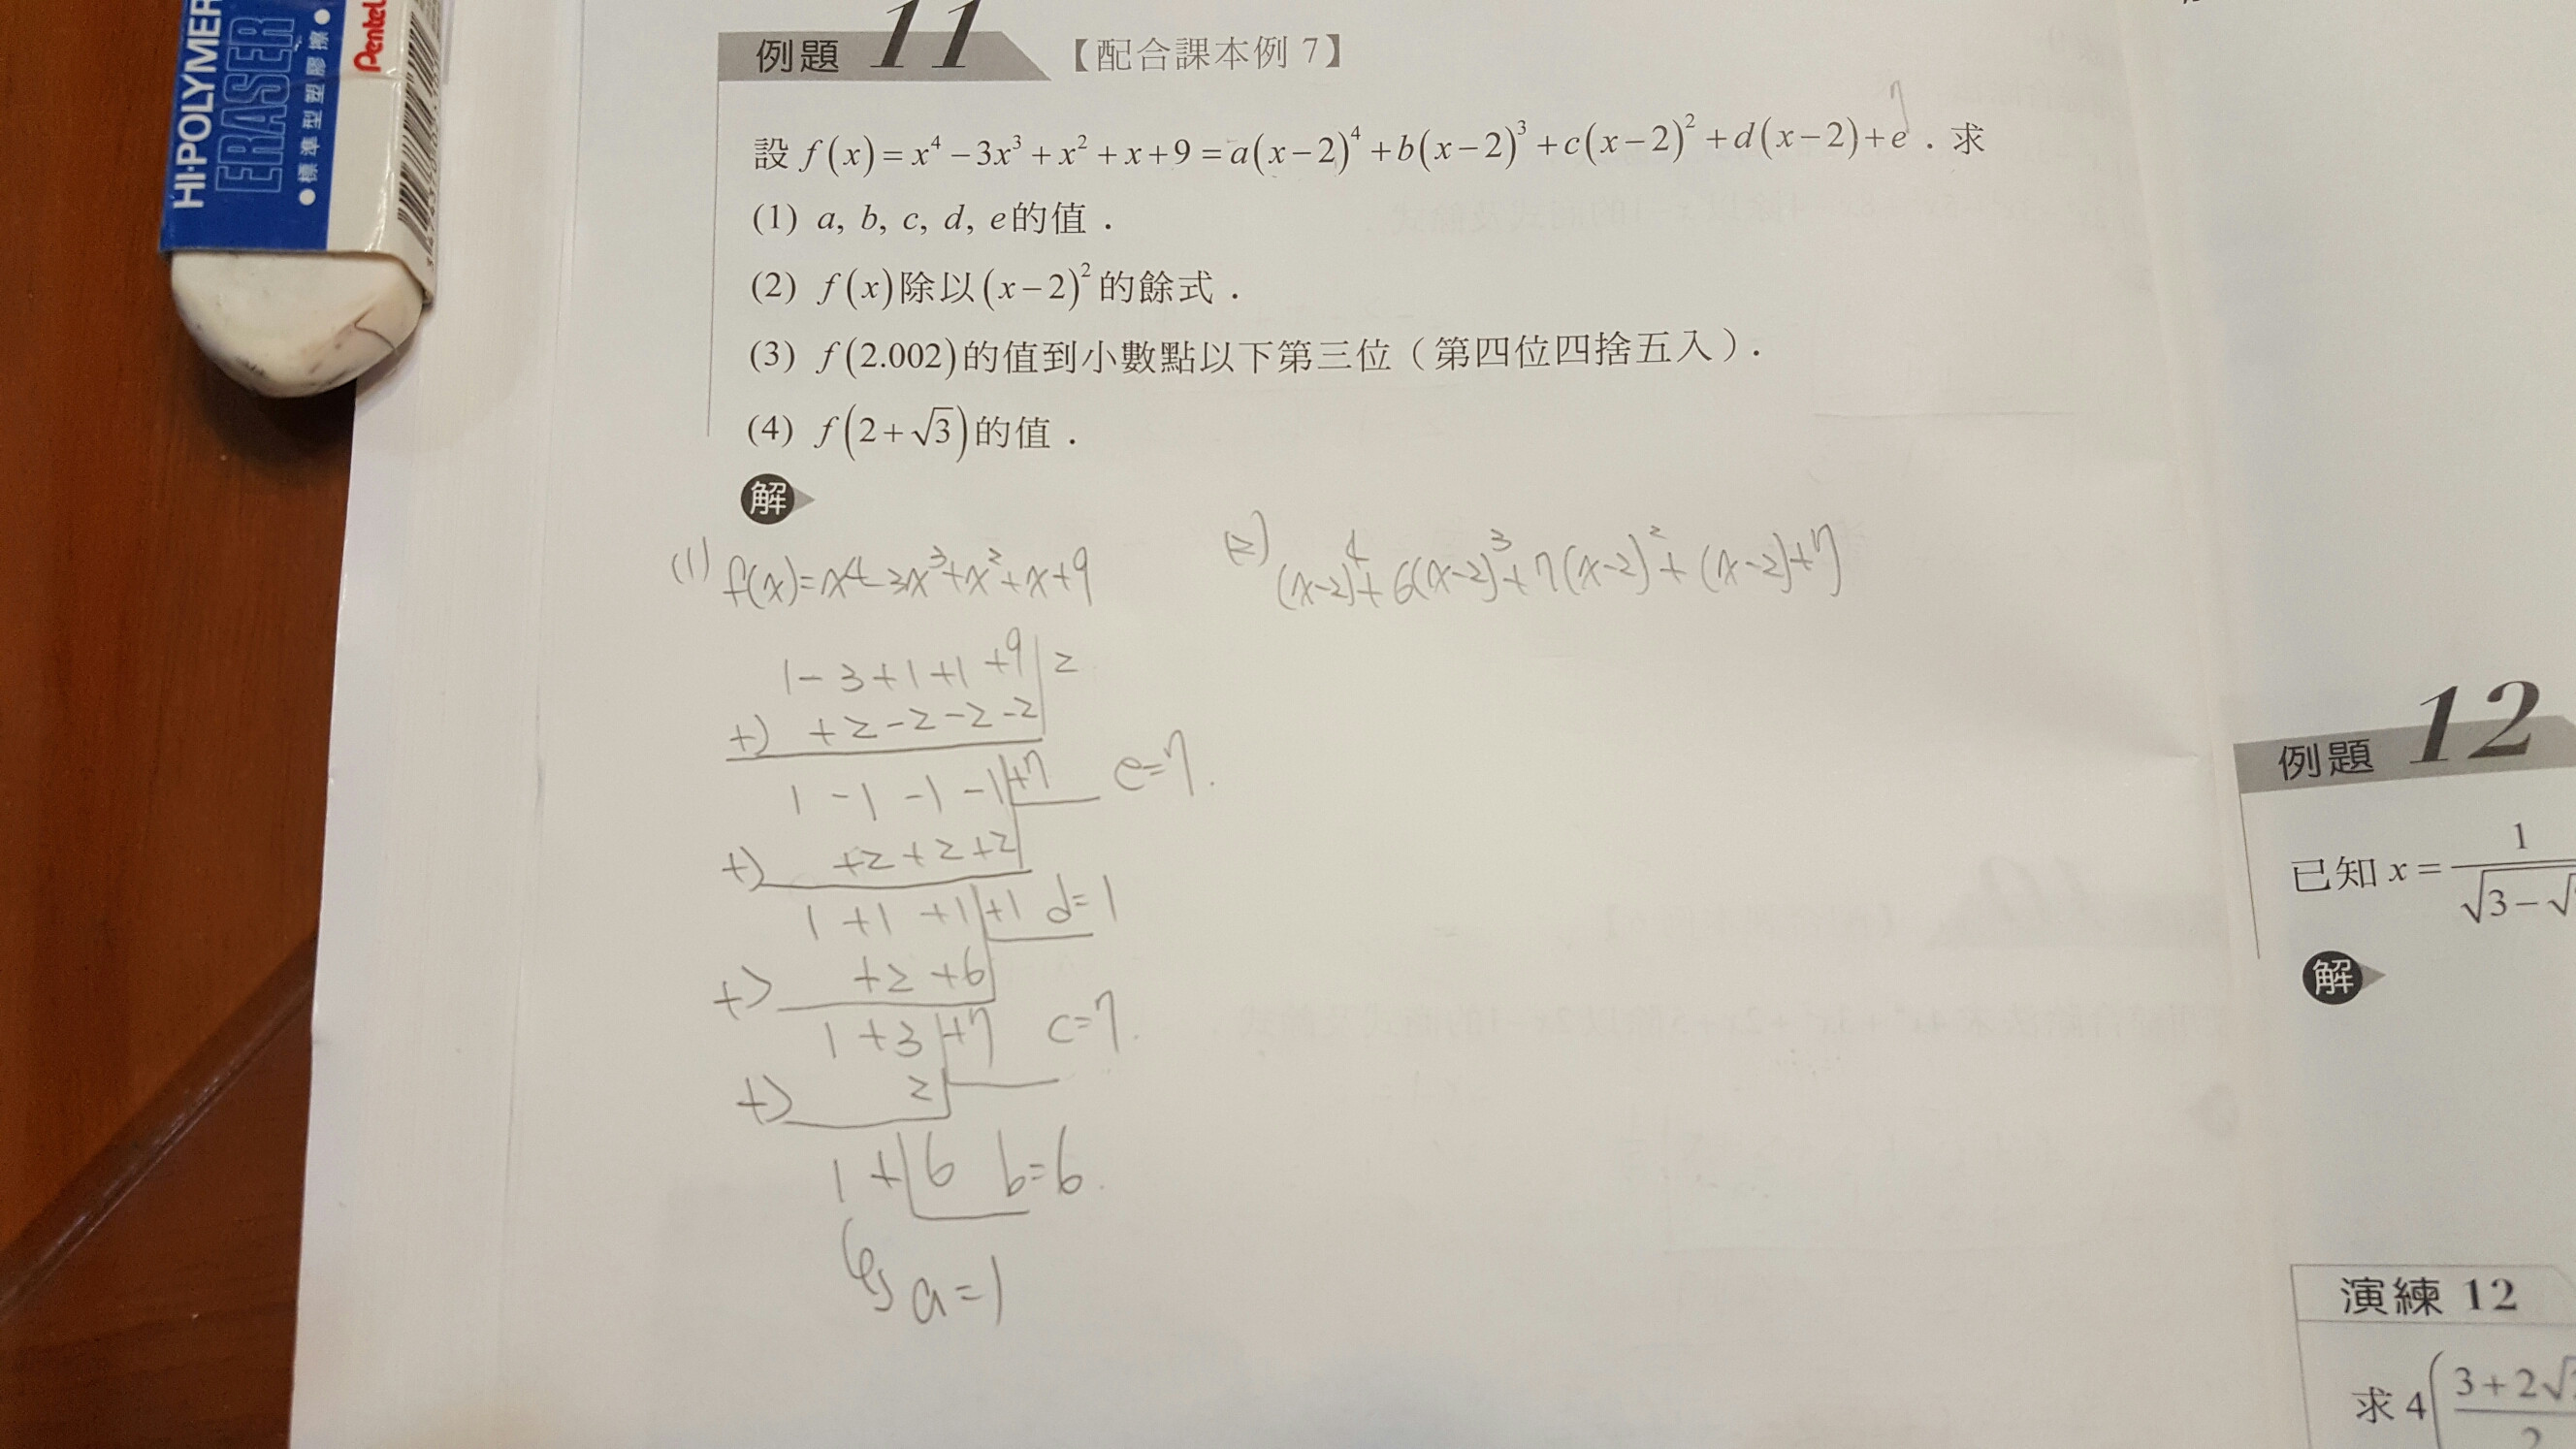 HI-POLYMER
ERASER
●標準型塑膠擦●
Pentel
例題 11 【配合課本例 7】
設 f(x)=x⁴−3x³+x²+x+9=a(x−2)⁴+b(x−2)³+c(x−2)²+d(x−2)+e．求
7
(1) a, b, c, d, e的值．
(2) f(x)除以(x−2)²的餘式．
(3) f(2.002)的值到小數點以下第三位（第四位四捨五入）．
(4) f(2+√3)的值．
解
(1) f(x)=x⁴-3x³+x²+x+9
1-3+1+1+9|2
+) +2-2-2-2
1-1-1-1|+7 e=7.
+) +2+2+2
1+1+1|+1 d=1
+) +2+6
1+3|+7 c=7.
+) 2
1+|6 b=6.
a=1
(2) (x-2)⁴+6(x-2)³+7(x-2)²+(x-2)+7
例題 12
已知 x= 1/√3−√
解
演練 12
求 4(3+2√
2